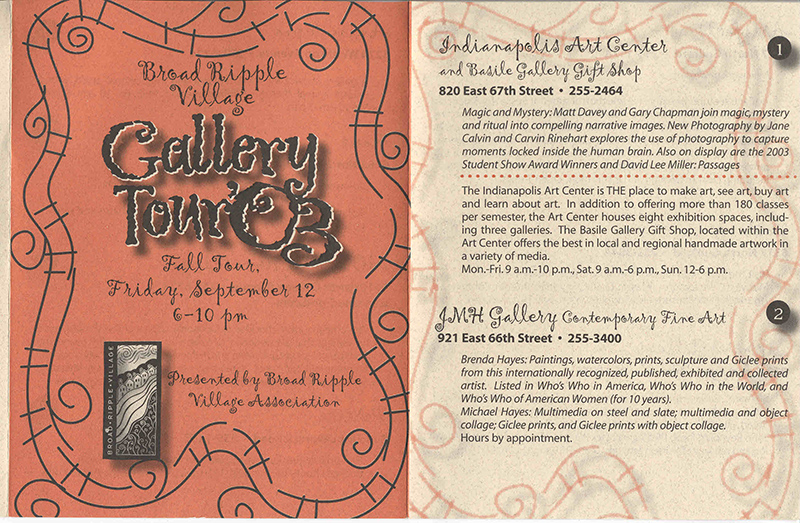 Broad Ripple
Village
Gallery
Tour '03
Fall Tour,
Friday, September 12
6-10 pm
BROAD·RIPPLE·VILLAGE
Presented by Broad Ripple
Village Association
Indianapolis Art Center
1
and Basile Gallery Gift Shop
820 East 67th Street • 255-2464
Magic and Mystery: Matt Davey and Gary Chapman join magic, mystery
and ritual into compelling narrative images. New Photography by Jane
Calvin and Carvin Rinehart explores the use of photography to capture
moments locked inside the human brain. Also on display are the 2003
Student Show Award Winners and David Lee Miller: Passages
The Indianapolis Art Center is THE place to make art, see art, buy art
and learn about art. In addition to offering more than 180 classes
per semester, the Art Center houses eight exhibition spaces, includ-
ing three galleries. The Basile Gallery Gift Shop, located within the
Art Center offers the best in local and regional handmade artwork in
a variety of media.
Mon.-Fri. 9 a.m.-10 p.m., Sat. 9 a.m.-6 p.m., Sun. 12-6 p.m.
JMH Gallery Contemporary Fine Art
2
921 East 66th Street • 255-3400
Brenda Hayes: Paintings, watercolors, prints, sculpture and Giclee prints
from this internationally recognized, published, exhibited and collected
artist. Listed in Who's Who in America, Who's Who in the World, and
Who's Who of American Women (for 10 years).
Michael Hayes: Multimedia on steel and slate; multimedia and object
collage; Giclee prints, and Giclee prints with object collage.
Hours by appointment.